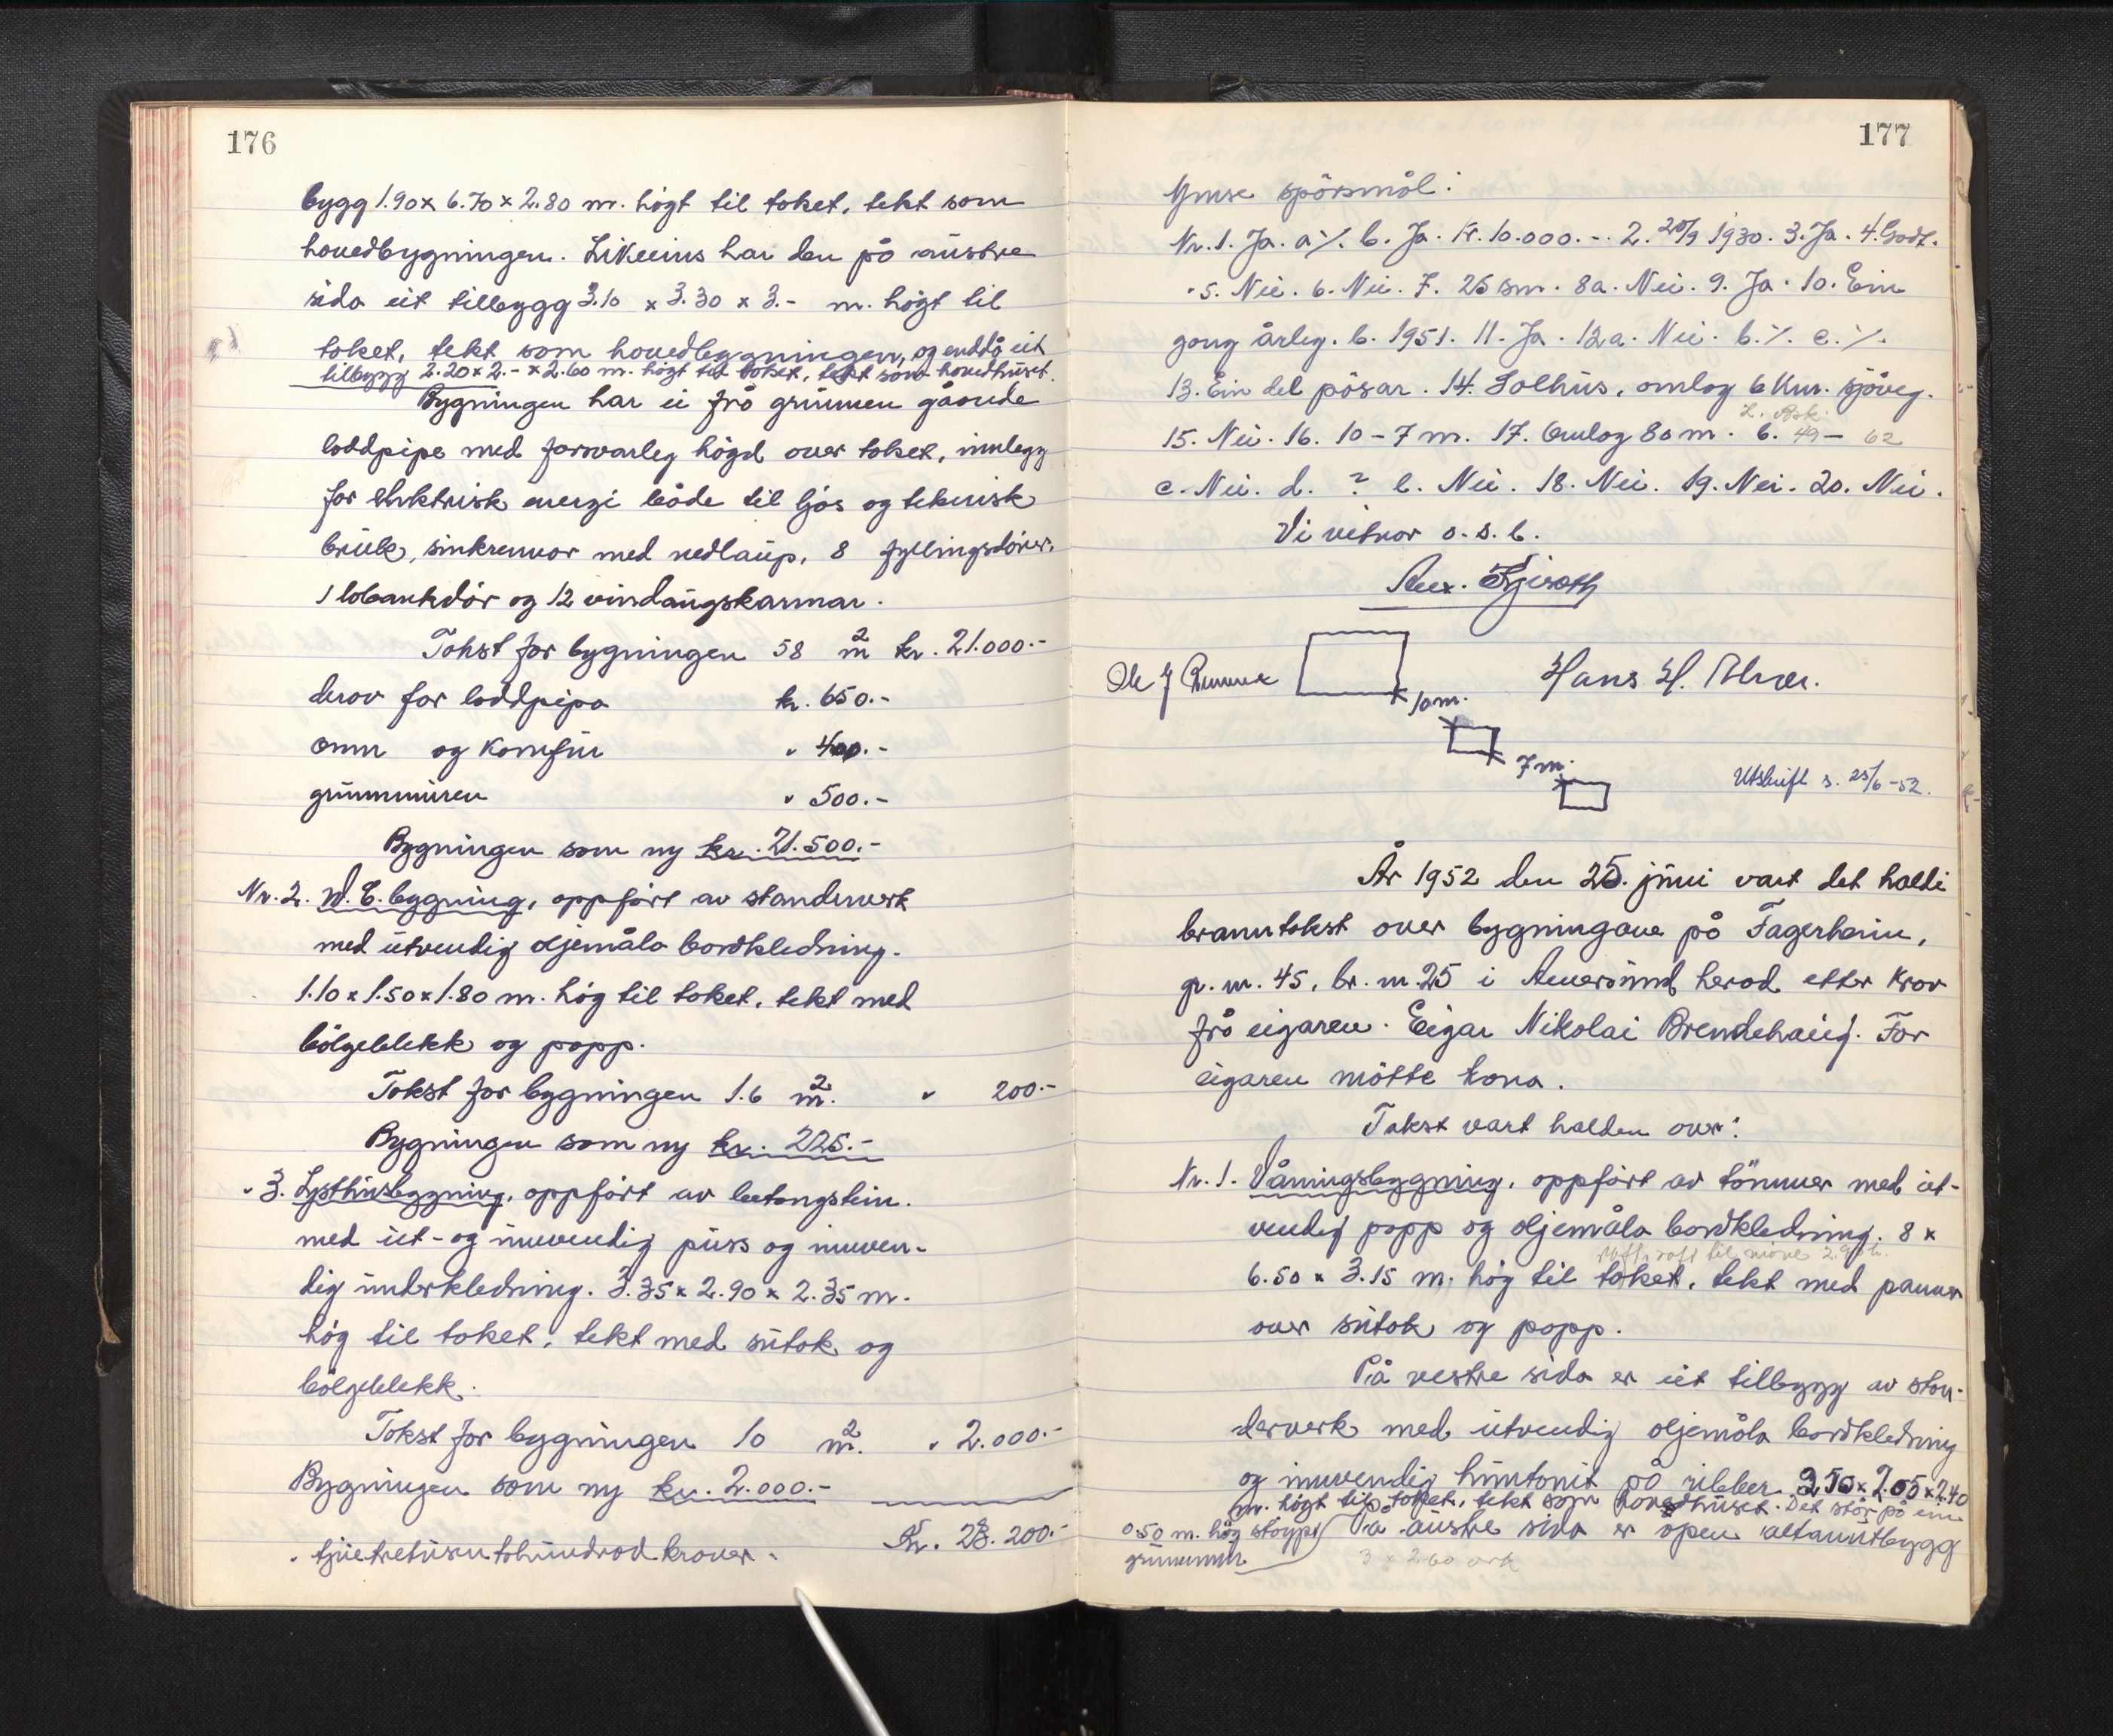 176
bygg 1.90 x 6.70 x 2.80 m. högt til taket, tekt som
hovedbygningen. Likeeins har den på austre
sida eit tilbygg 3.10 x 3.30 x 3.- m. högt til
taket, tekt som hovedbygningen, og enddå eit
tilbygg 2.20 x 2.- x 2.60 m. högt til taket, tekt som hovedhuset.
Bygningen har ei frå grunnen gåande
loddpipe med forsvarleg högd over taket, innlegg
for elektrisk energi både til ljos og teknisk
bruk, sinkrennor med nedlaup, 8 fyllingsdörer,
1 labankdör og 12 vindaugskarmar.
Takst for bygningen 58 m2 kr. 21.000.-
derav for loddpipa kr. 650.-
omn og komfur " 400.-
grunnmuren " 500.-
Bygningen som ny kr. 21.500.-
Nr. 2. W.C. bygning, oppfört av standerverk
med utvendig oljemåla bordkledning.
1.10 x 1.50 x 1.80 m. hög til taket, tekt med
bölgeblekk og papp.
Takst for bygningen 1.6 m2. " 200.-
Bygningen som ny kr. 225.-
" 3. Lysthusbygning, oppfört av betongstein.
med ut- og innvendig puss og innven-
dig underkledning. 3.35 x 2.90 x 2.35 m.
hög til taket, tekt med sutak og
bölgeblekk.
Takst for bygningen 10 m2. " 2.000.-
Bygningen som ny kr. 2.000.-
Kr. 23.200.-
tjuetretusentohundrad kroner.
177
Ymse spörsmål:
Nr. 1. Ja. a ./. b. Ja. Kr. 10.000.-. 2. 20/9 1930. 3. Ja. 4. Godt.
" 5. Nei. 6. Nei. 7. 25 sm. 8a. Nei. 9. Ja. 10. Ein
gong årleg. b. 1951. 11. Ja. 12a. Nei. b. ./. c. ./.
13. Ein del pösar. 14. Solhus, omlag 6 km. sjöveg.
15. Nei. 16. 10 - 7 m. 17. Omlag 80 m. b. 49 - 62
c. Nei. d. ? e. Nei. 18. Nei. 19. Nei. 20. Nei.
Vi vitnar o.s.b.
Hans H.
10 m.
7 m.
Utskrift s. 25/6 -52.
År 1952 den 25. juni vart det haldi
branntakst over bygningane på Fagerheim,
gr. nr. 45, br. nr. 25 i Aversund herad etter krav
frå eigaren. Eigar Nikolai Brendehaug. For
eigaren mötte kona.
Takst vart halden over:
Nr. 1. Våningsbygning, oppfört av tömmer med ut-
vendig papp og oljemåla bordkledning. 8 x
6.50 x 3.15 m. hög til taket, tekt med panner
over sutak og papp.
På vestre sida er eit tilbygg av stan-
derverk med utvendig oljemåla bordkledning
og innvendig huntonit på ribber. 2.50 x 2.05 x 2.40
m. högt til taket, tekt som hovedhuset. Det står på ein
0.50 m. hög stöypt
grunnmur
På austre sida er open altanutbygg
3 x 2.60 ark